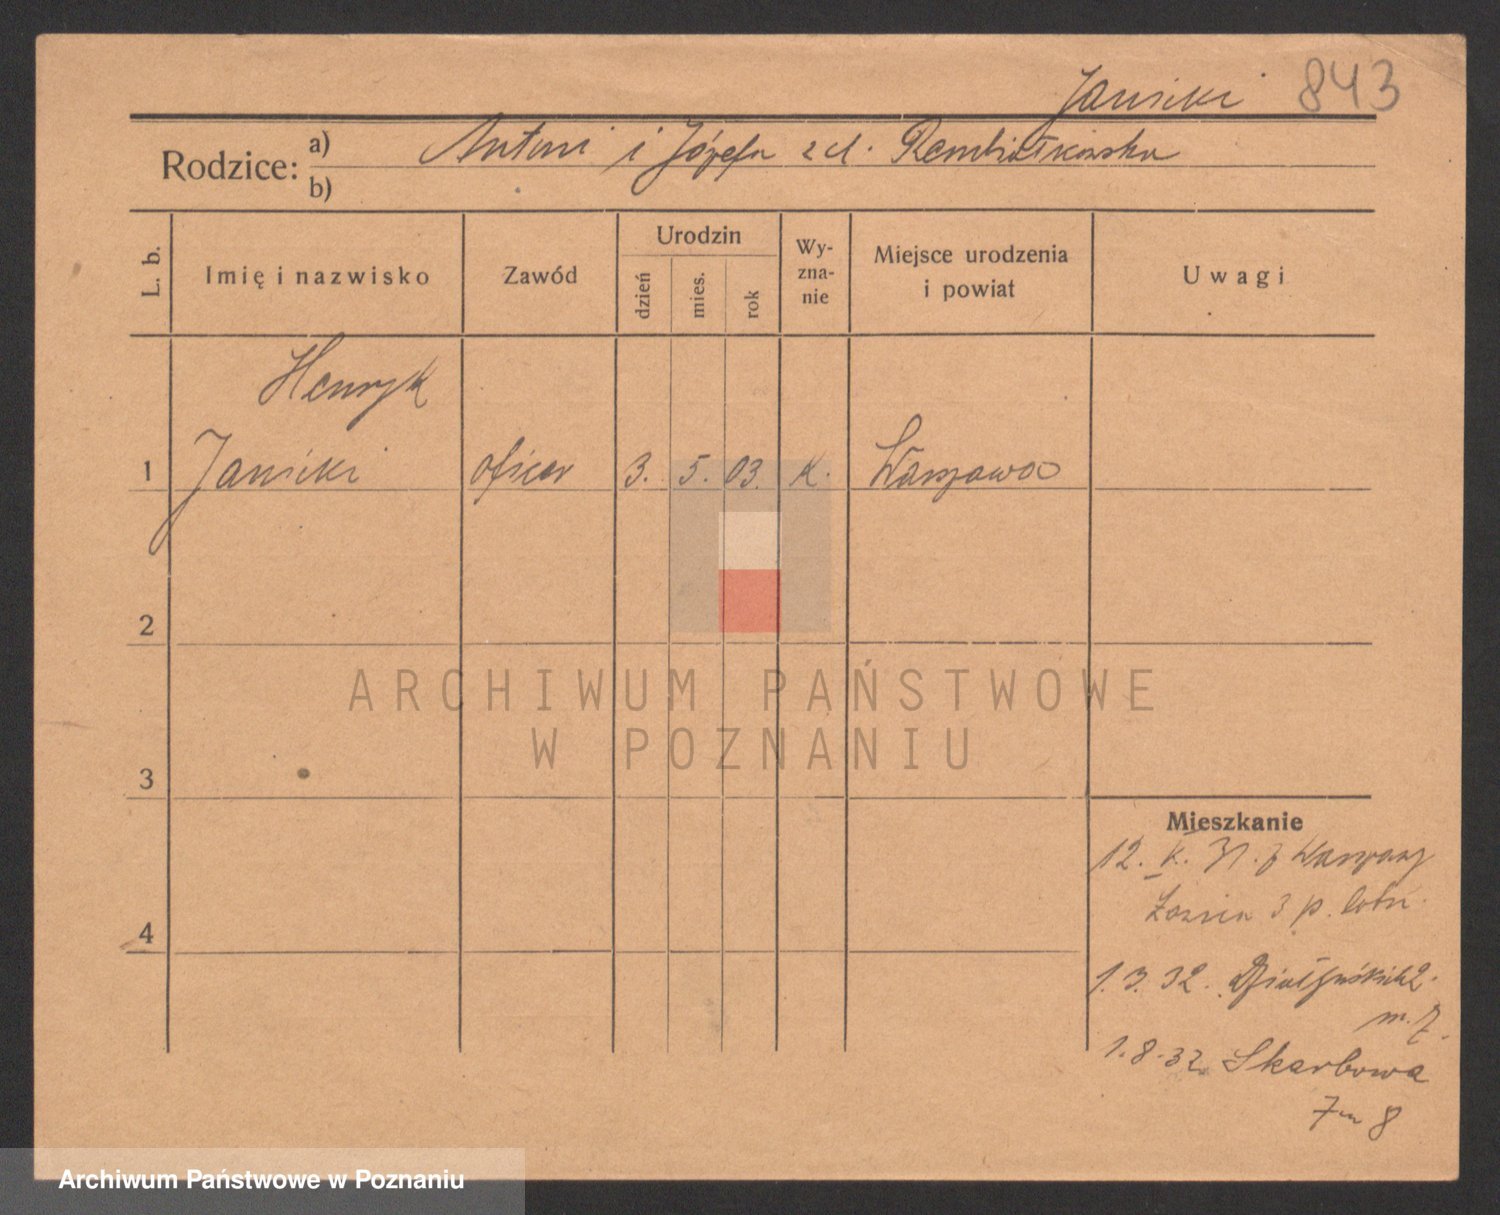 Janicki 843
Rodzice: a) Antoni i Józefa z d. Rembiałkowska
b)
L. b.
Imię i nazwisko
Zawód
Urodzin
dzień
mies.
rok
Wy-
zna-
nie
Miejsce urodzenia
i powiat
Uwagi
Henryk
1 Janicki oficer 3. 5. 03. K. Warszawa
2
3
4
ARCHIWUM PAŃSTWOWE
W POZNANIU
Mieszkanie
12. X. 31. z Warszawy
3 p. lotn.
1.3.32. Działyńskich 2.
m. 7.
1.8.32 Skarbowa
7 m 8
Archiwum Państwowe w Poznaniu